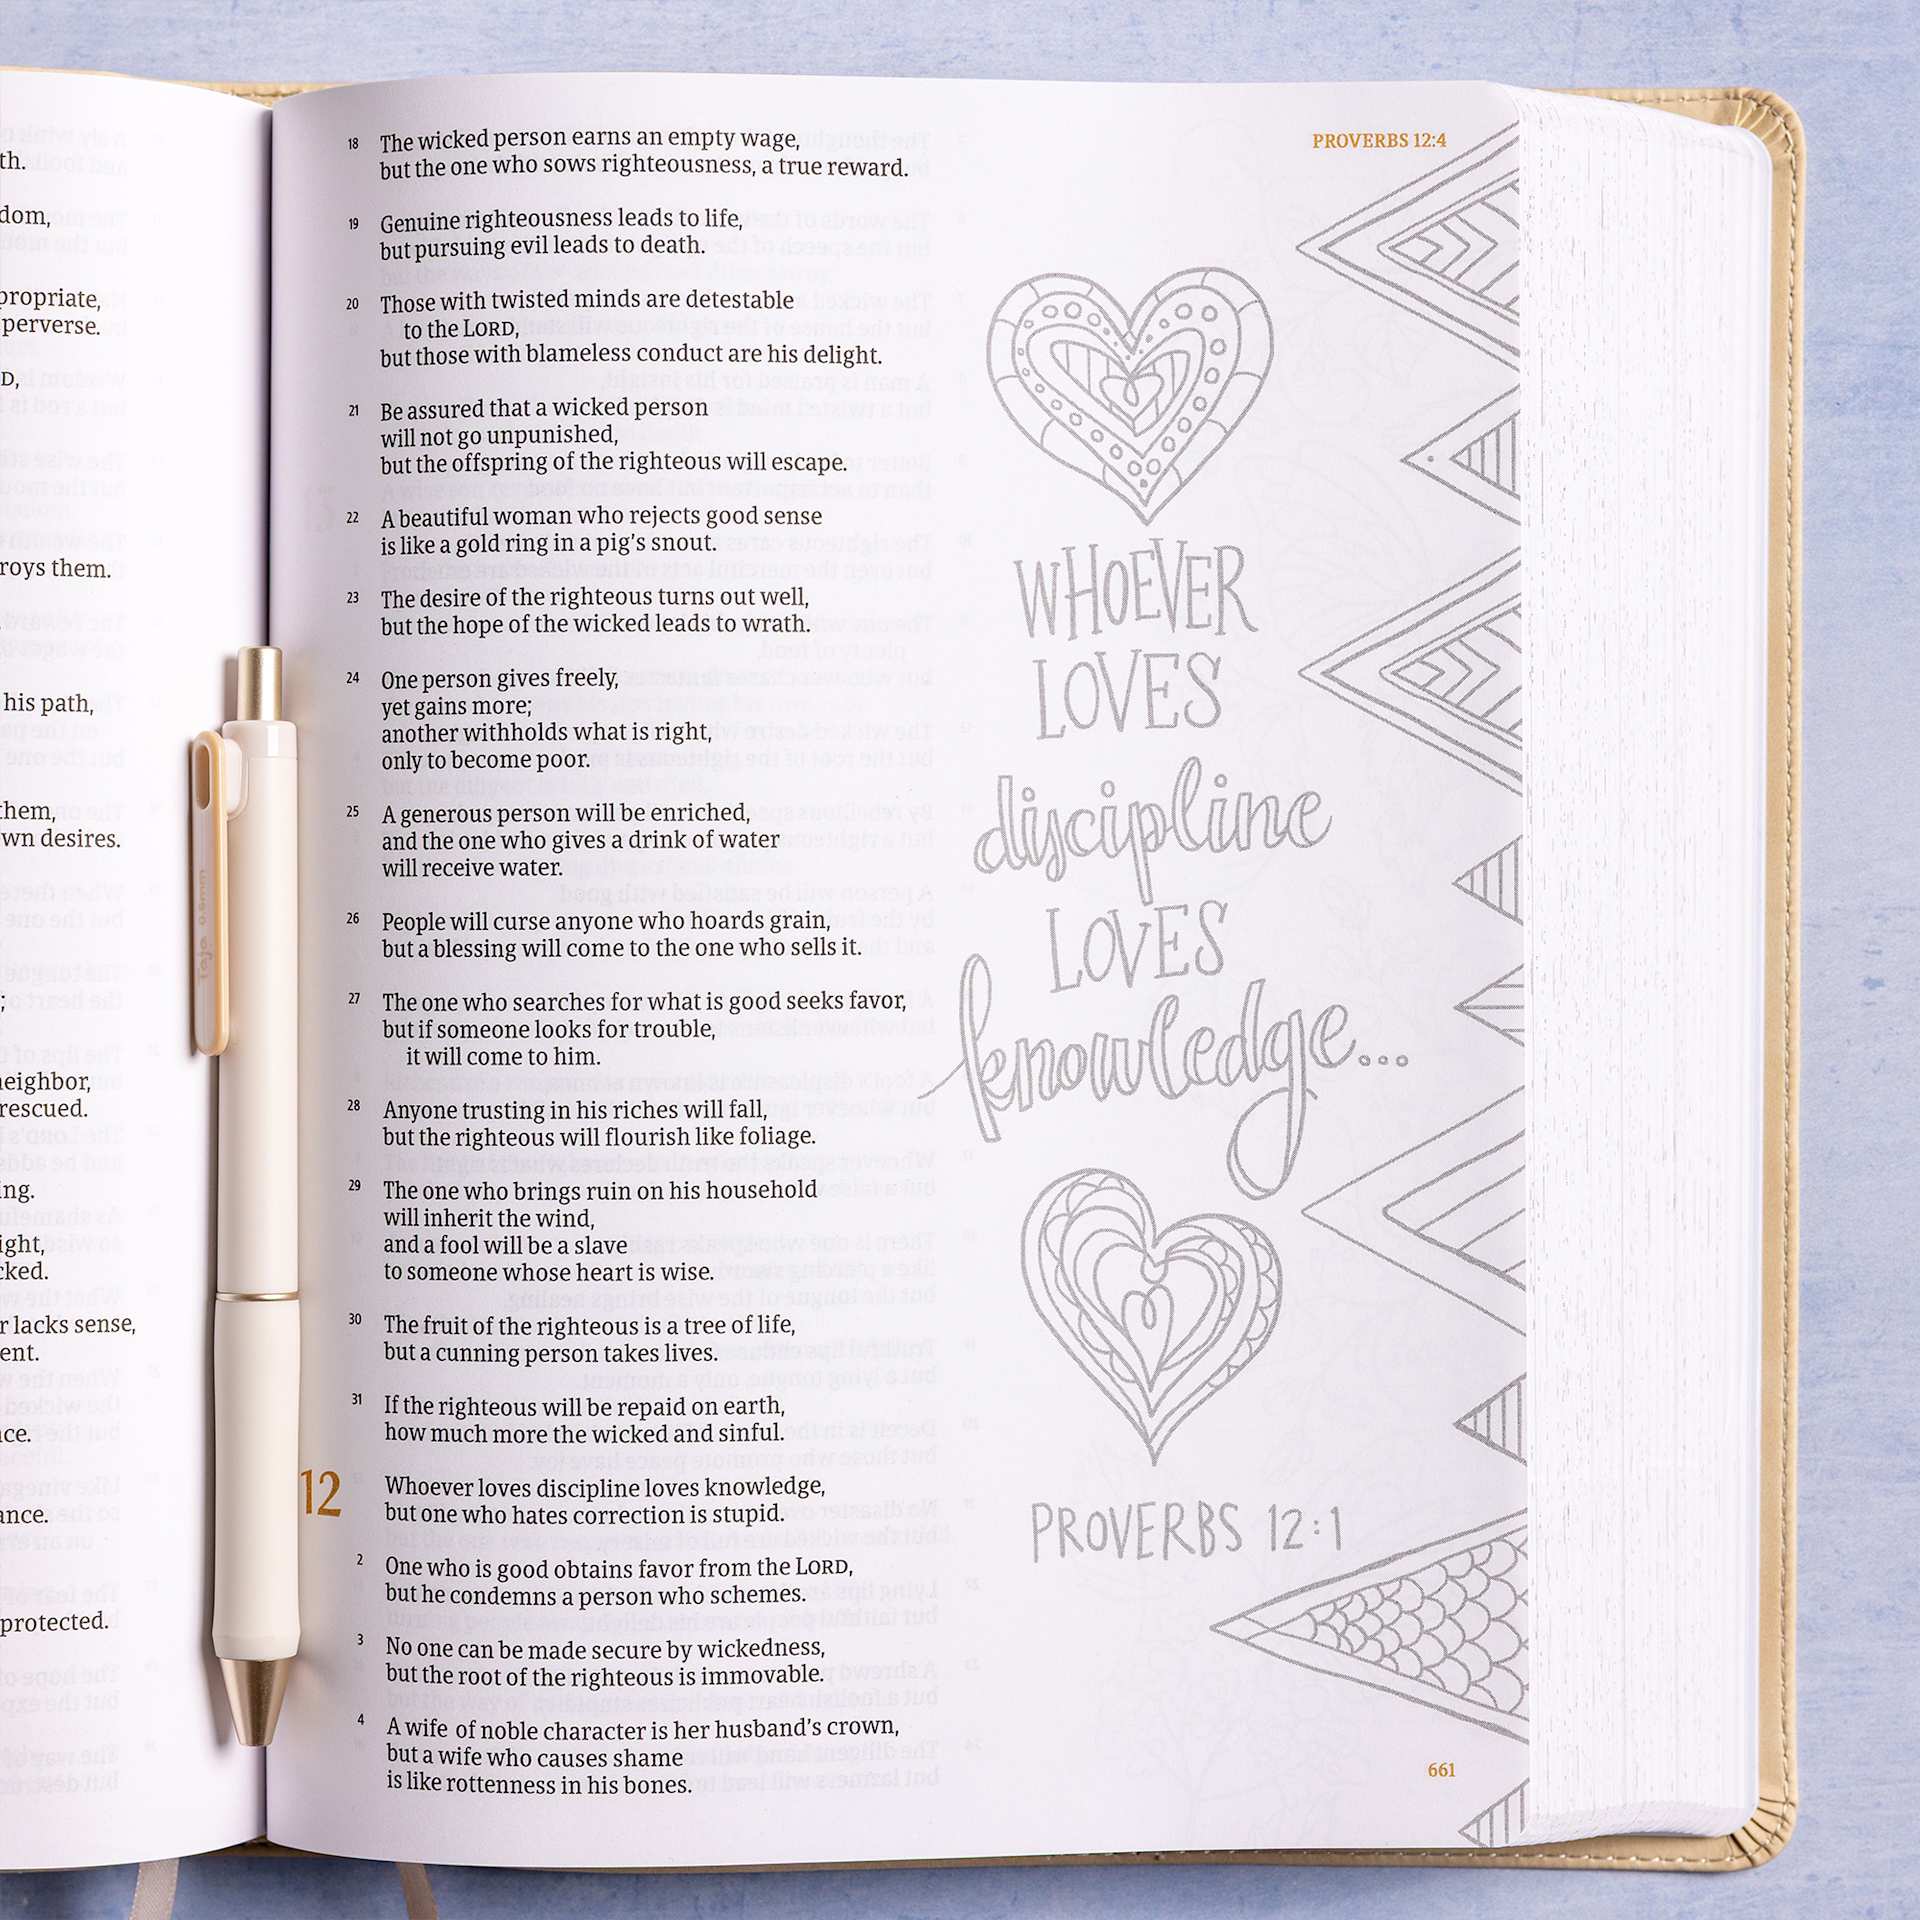 th.
dom,
propriate,
perverse.
D,
roys them.
his path,
them,
wn desires.
;
neighbor,
rescued.
ing.
ight,
cked.
r lacks sense,
ent.
ce.
ance.
protected.
Taja 0.6mm
PROVERBS 12:4
18 The wicked person earns an empty wage,
but the one who sows righteousness, a true reward.
19 Genuine righteousness leads to life,
but pursuing evil leads to death.
20 Those with twisted minds are detestable
to the LORD,
but those with blameless conduct are his delight.
21 Be assured that a wicked person
will not go unpunished,
but the offspring of the righteous will escape.
22 A beautiful woman who rejects good sense
is like a gold ring in a pig’s snout.
23 The desire of the righteous turns out well,
but the hope of the wicked leads to wrath.
24 One person gives freely,
yet gains more;
another withholds what is right,
only to become poor.
25 A generous person will be enriched,
and the one who gives a drink of water
will receive water.
26 People will curse anyone who hoards grain,
but a blessing will come to the one who sells it.
27 The one who searches for what is good seeks favor,
but if someone looks for trouble,
it will come to him.
28 Anyone trusting in his riches will fall,
but the righteous will flourish like foliage.
29 The one who brings ruin on his household
will inherit the wind,
and a fool will be a slave
to someone whose heart is wise.
30 The fruit of the righteous is a tree of life,
but a cunning person takes lives.
31 If the righteous will be repaid on earth,
how much more the wicked and sinful.
12 Whoever loves discipline loves knowledge,
but one who hates correction is stupid.
2 One who is good obtains favor from the LORD,
but he condemns a person who schemes.
3 No one can be made secure by wickedness,
but the root of the righteous is immovable.
4 A wife of noble character is her husband’s crown,
but a wife who causes shame
is like rottenness in his bones.
WHOEVER
LOVES
discipline
LOVES
knowledge...
PROVERBS 12:1
661